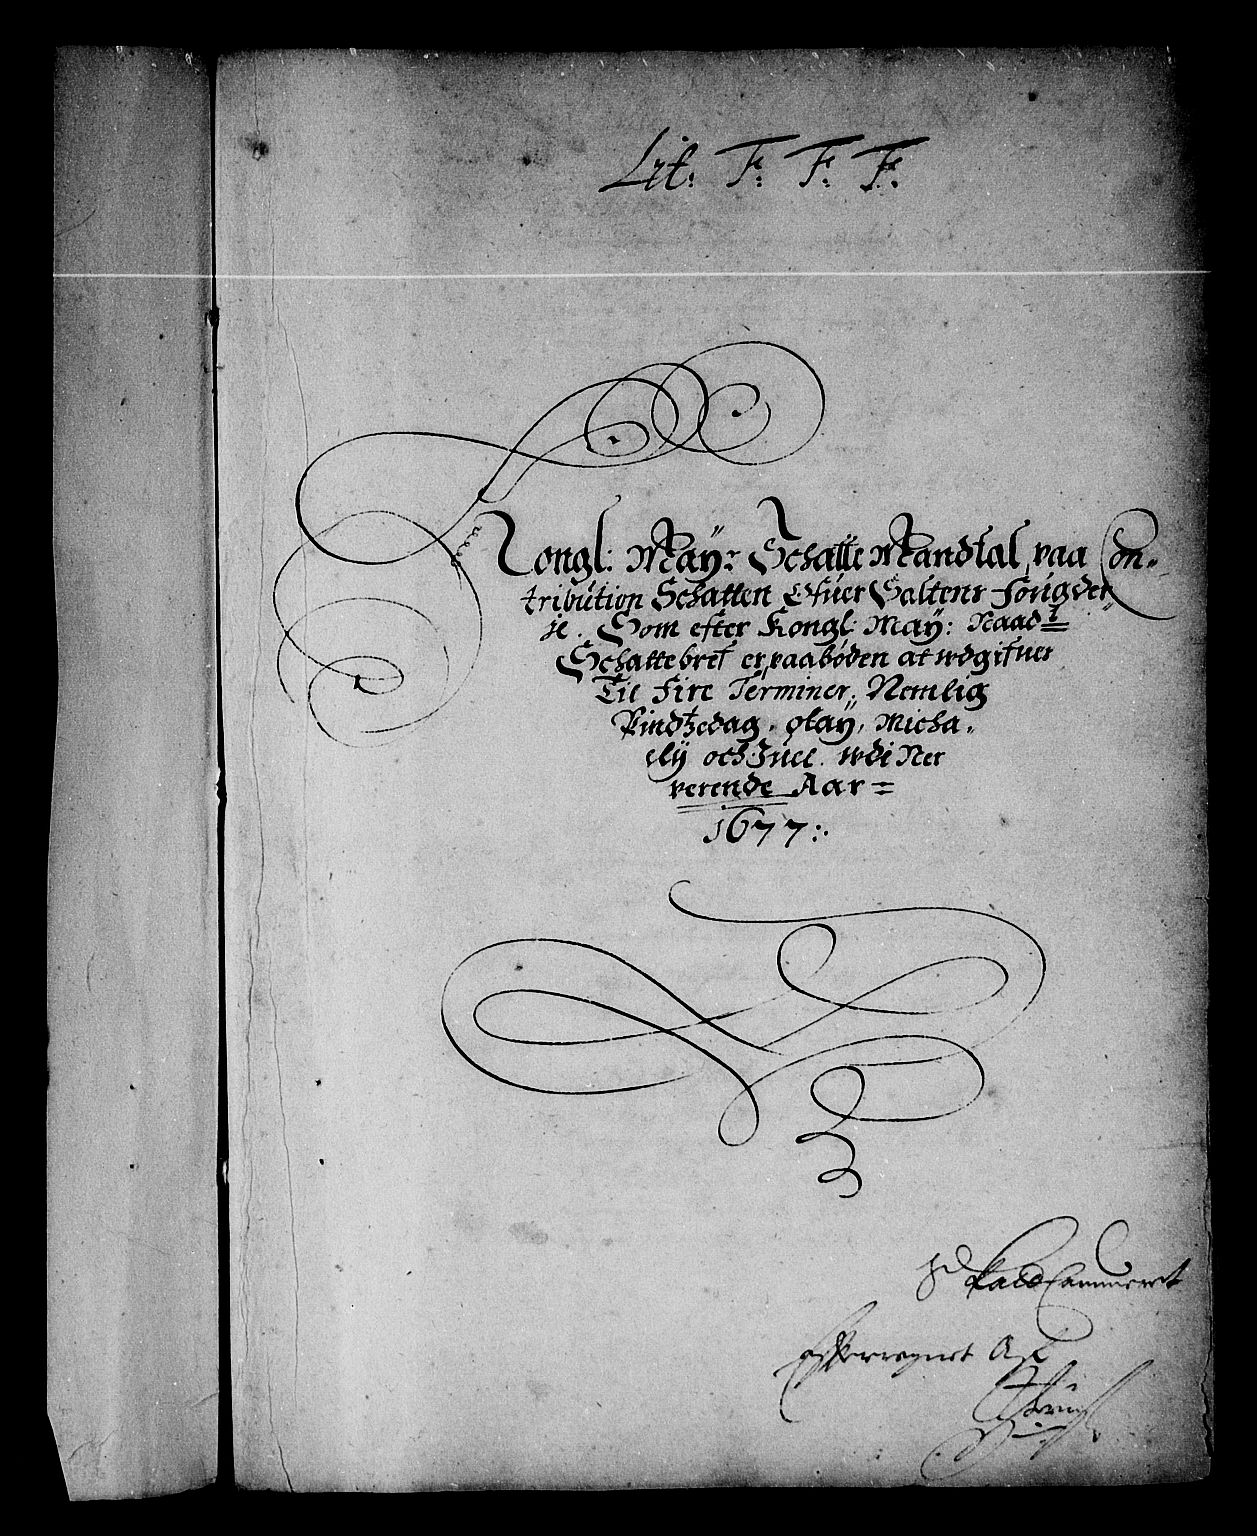 Lit: F: F: F:
Kongl: May:ᵗˢ Schatte Mandtal paa Con-
tribution Schatten Ofuer Saltens fougderj
je. Som efter Kongl: May: Naadᵗ
Schattebref er paabøden at wdgifuer
Til fire Terminer, Nemlig
Pindtzedag, olaÿ, Micha,
elÿ och Juel. wdi Ner
verende Aar =
1677:.
Efterregnet Af